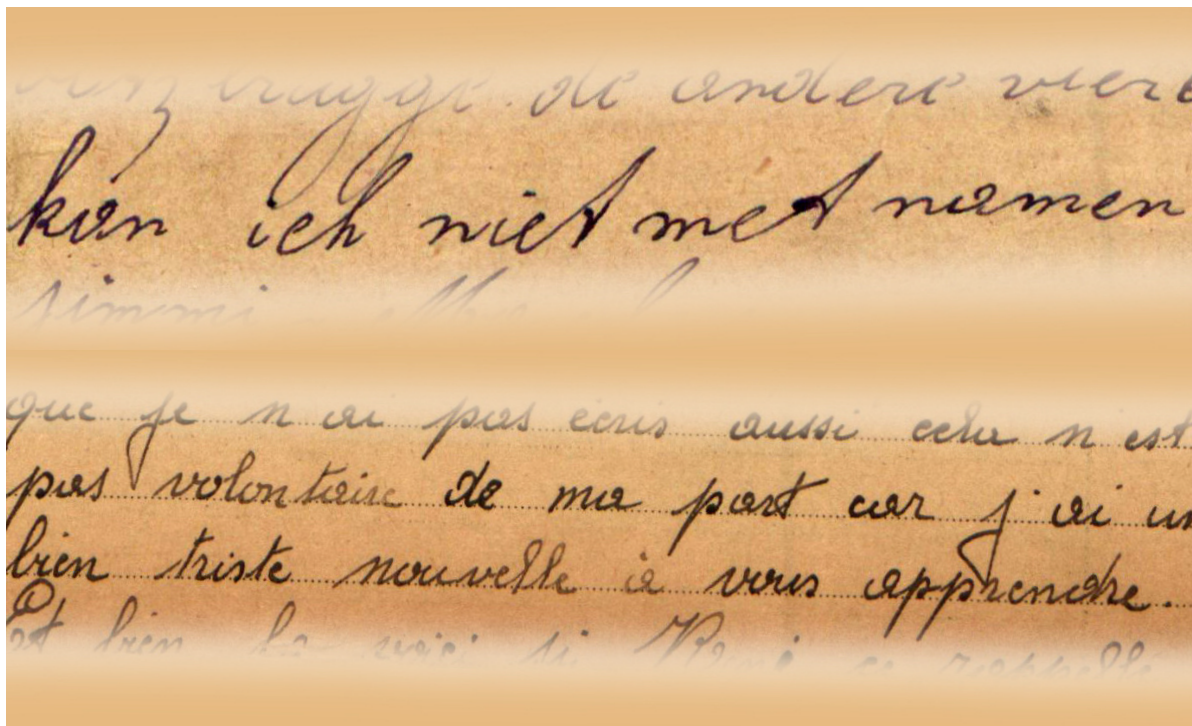 brugge. de andere viere
kan ich niet met namen
que je n ai pas ecris aussi cela n est
pas volontaire de ma part car j'ai un
bien triste nouvelle à vous apprendre.
Et bien la voici si René ce rappelle